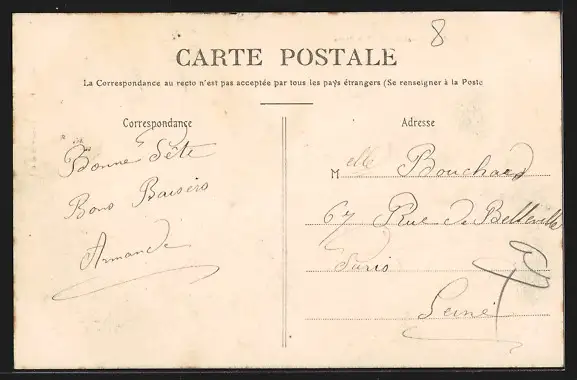 8
CARTE POSTALE
La Correspondance au recto n'est pas acceptée par tous les pays étrangers (Se renseigner à la Poste
Correspondance
Bonne Fête
Bons Baisers
Armande
Adresse
Melle Bouchard
67 Rue de Belleville
Paris
Seine